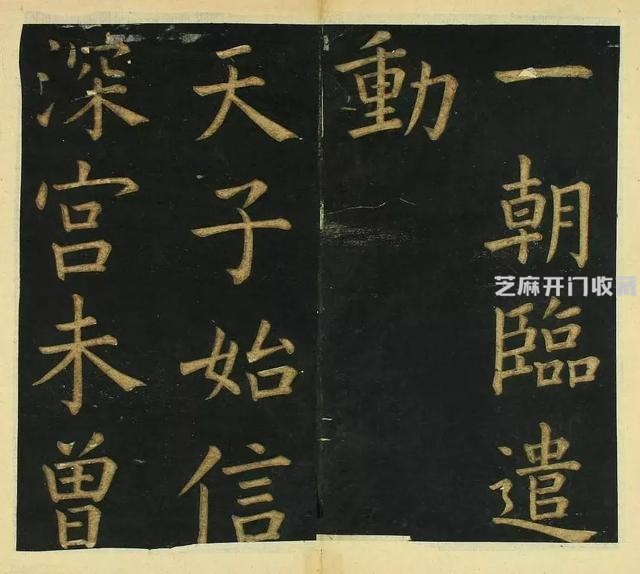 一朝臨遣
動
天子始信
深宮未曾
芝麻开门收藏